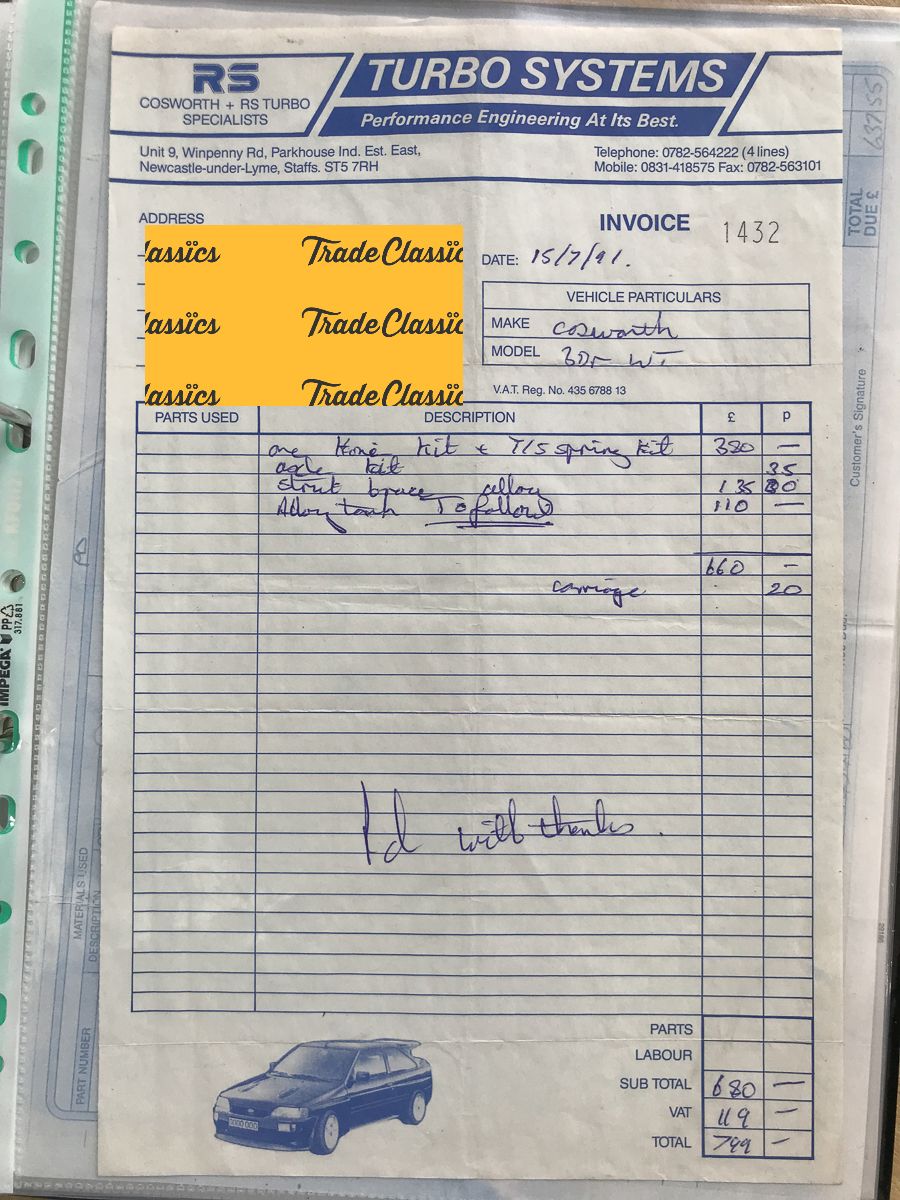 RS
COSWORTH + RS TURBO
SPECIALISTS
TURBO SYSTEMS
Performance Engineering At Its Best.
Unit 9, Winpenny Rd, Parkhouse Ind. Est. East,
Newcastle-under-Lyme, Staffs. ST5 7RH
Telephone: 0782-564222 (4 lines)
Mobile: 0831-418575 Fax: 0782-563101
ADDRESS
INVOICE 1432
DATE: 15/7/91.
VEHICLE PARTICULARS
MAKE Cosworth
MODEL 3Dr
V.A.T. Reg. No. 435 6788 13
lassïcs TradeClassïc
lassïcs TradeClassïc
lassïcs TradeClassïc
PARTS USED DESCRIPTION £ p
one kit + T/S spring kit 380 —
axle kit 35
Strut brace alloy 135 00
Alloy tank To follow 110 —
660 –
carriage 20
Pd with thanks.
PARTS
LABOUR
SUB TOTAL 680 —
VAT 119 —
TOTAL 799 —
TOTAL
DUE £
637.55
Customer's Signature
MATERIALS USED
DESCRIPTION
PART NUMBER
IMPEGA
PP
317.881